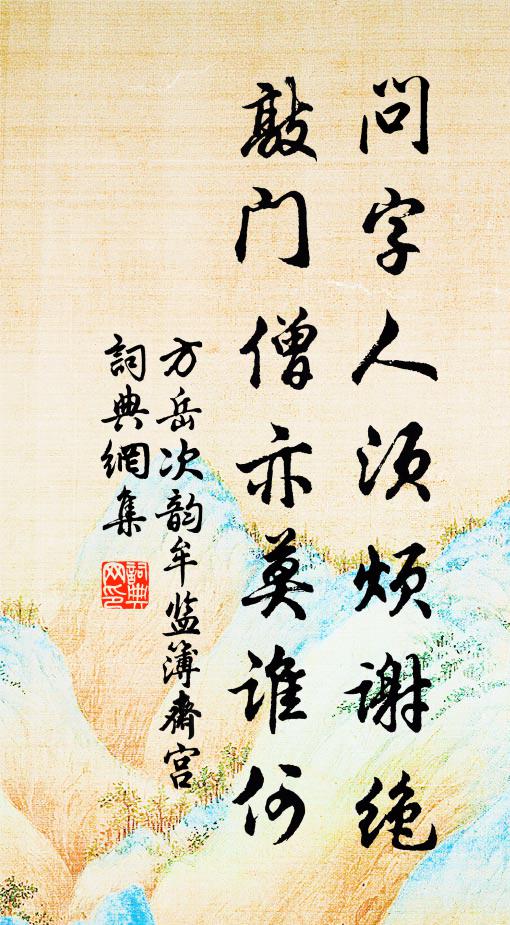 问字人须烦谢绝
敲门僧亦莫谁何
方岳次韵牟监簿斋宫
詞典網集
詞典网印